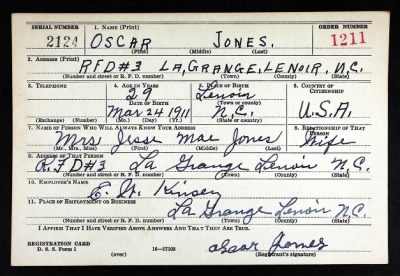 SERIAL NUMBER 1. NAME (Print) ORDER NUMBER
2124 OSCAR JONES. 1211
(First) (Middle) (Last)
2. ADDRESS (Print)
RFD#3 LA, GRANGE, LENOIR, N.C.
(Number and street or R. F. D. number) (Town) (County) (State)
3. TELEPHONE 4. AGE IN YEARS 5. PLACE OF BIRTH 6. COUNTRY OF CITIZENSHIP
29 Lenoir
DATE OF BIRTH
Mar 24 1911 N.C. U.S.A.
(Exchange) (Number) (Mo.) (Day) (Yr.) (State or country)
7. NAME OF PERSON WHO WILL ALWAYS KNOW YOUR ADDRESS 8. RELATIONSHIP OF THAT PERSON
Mrs Jesse Mae Jones Wife
(Mr., Mrs., Miss) (First) (Middle) (Last)
9. ADDRESS OF THAT PERSON
R.F.D#3 La Grange Lenoir N.C.
(Number and street or R. F. D. number) (Town) (County) (State)
10. EMPLOYER'S NAME
E. W. Kinsey
11. PLACE OF EMPLOYMENT OR BUSINESS
La Grange Lenoir N.C.
(Number and street or R. F. D. number) (Town) (County) (State)
I AFFIRM THAT I HAVE VERIFIED ABOVE ANSWERS AND THAT THEY ARE TRUE.
REGISTRATION CARD
D. S. S. Form 1 16—17105 oscar Jones
(over) (Registrant's signature)